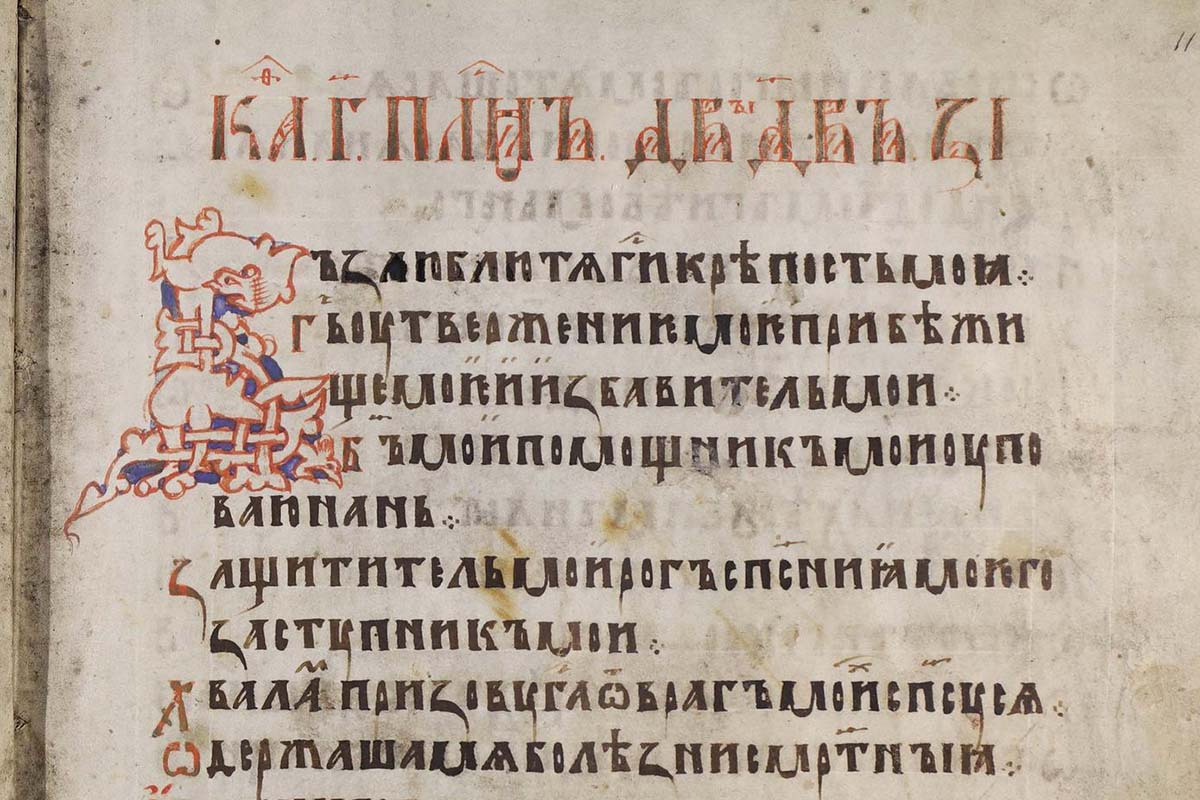 11
КАѲ҃.Г҃.ПЛ҃МНЪ. ДВ҃ЫДВЪ. ЗІ
ВЪзлюблютѧг҃икрѣпостьмоꙗ ⁘
г҃ьоутвержениѥмоѥприбѣжи
щемоѥиизбавительмои ⁘
б҃ъмоипомощникъмоиоупо
ваюнань ⁘
защитительмоирогъсп҃сниꙗмоѥго
заступникъмои ⁘
хвалѧпризовуг҃аѿврагъмоихсп҃сусѧ ⁘
ѡдержашамѧболѣзнисмр҃тныꙗ ⁘